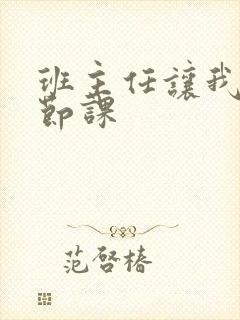 班主任讓我
節課
范啓椿